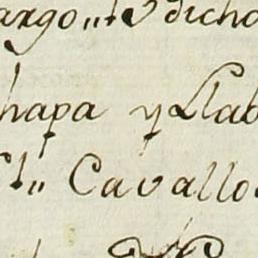 argo,,t dicho
hapa y Llab
t,, Cavallo